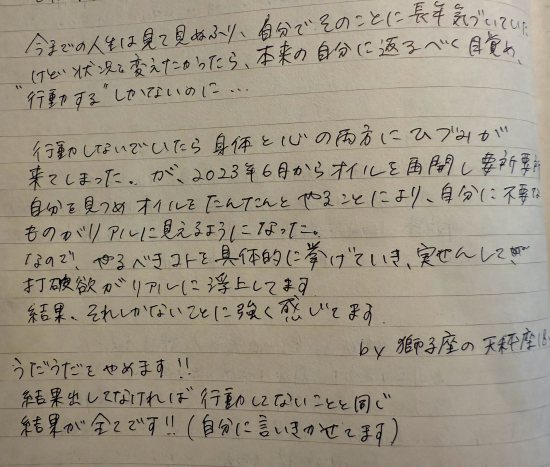 今までの人生は見て見ぬふり、自分でそのことに長年気づいていた
けど状況を変えたかったら、本来の自分に返るべく目覚め、
"行動する"しかないのに…
行動しないでいたら身体と心の両方にひづみが
来てしまった。が、2023年6月からオイルを再開し要所要所
自分を見つめオイルをたんたんとやることにより、自分に不要な
ものがリアルに見えるようになった。
なので、やるべきコトを具体的に挙げていき、実せんして、
打破欲がリアルに浮上してます
結果、それしかないことに強く感じてます
by 獅子座の天秤座
うだうだをやめます!!
結果出してなければ行動してないことと同じ
結果が全てです!!(自分に言いきかせてます)